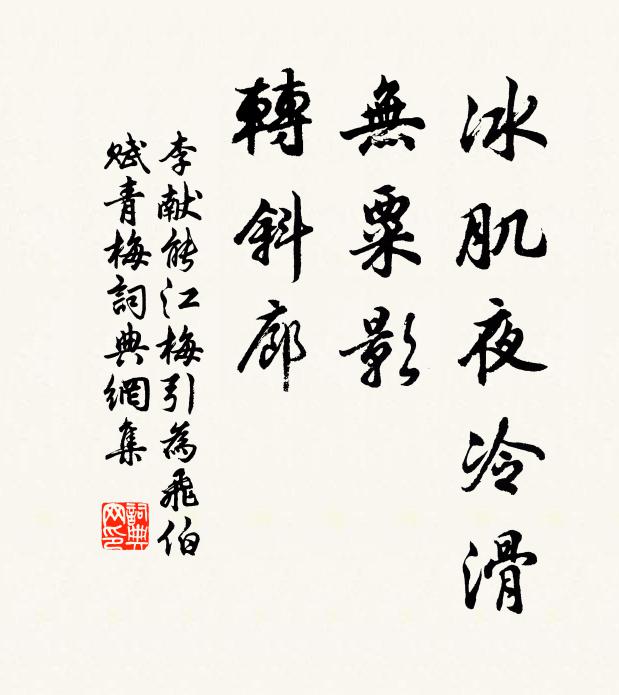 冰肌夜冷滑
無粟影
轉斜廊
李献能江梅引為飛伯
賦青梅詞典網集
詞典
网印